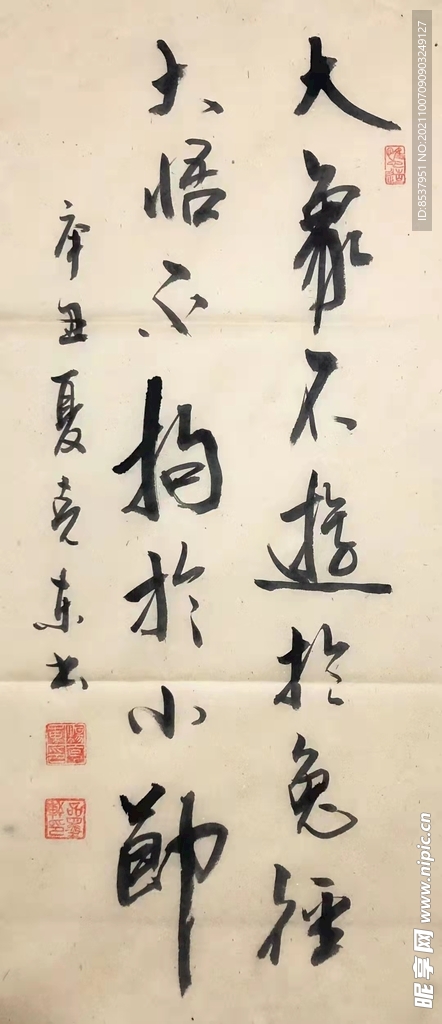 大象不遊於兔徑
大悟不拘於小節
辛丑夏堯東书
ID:8537951 NO:20211007090903249127
昵享网 www.nipic.cn